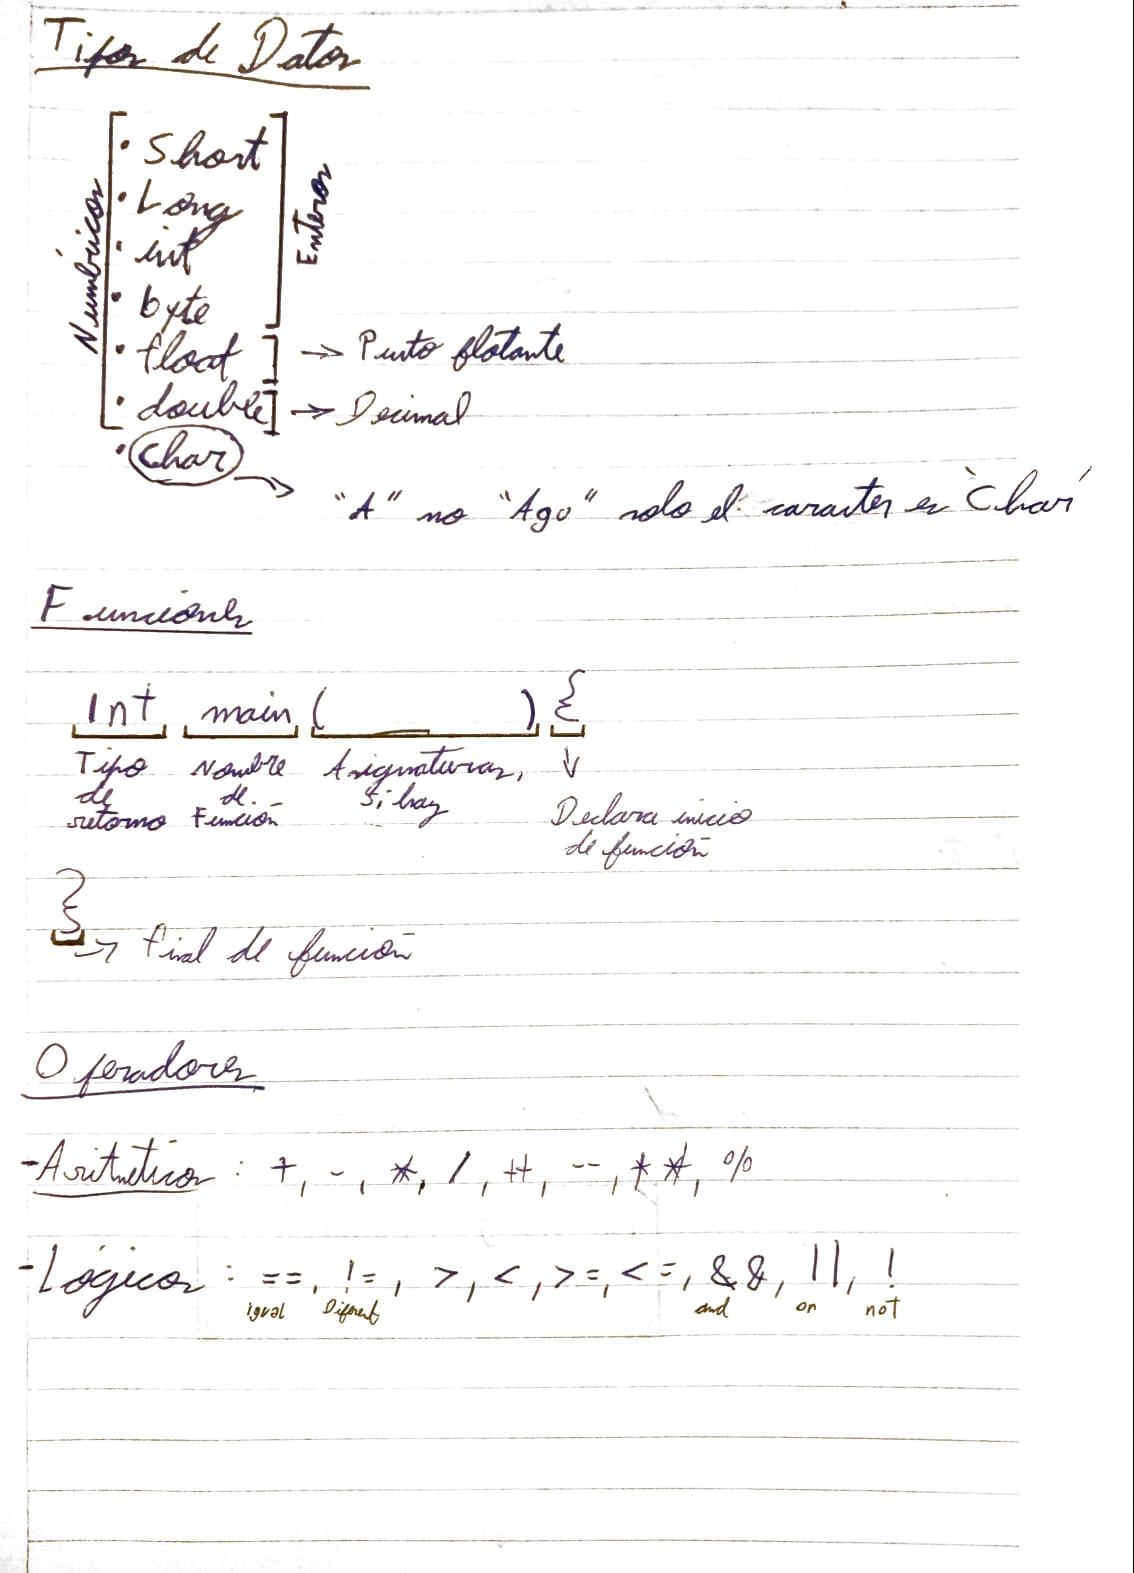 Tipos de Datos
Numéricos
• Short
• Long
• int
• byte
Enteros
• float ] → Punto flotante
• double ] → Decimal
• Char
→ "A" no "Ago" solo el caracter es 'Char'
Funciones
Int main ( ) {
Tipo de retorno
Nombre de Función
Asignaturas, si hay
↓
Declara inicio de función
}
→ final de función
Operadores
-Aritmética : +, -, *, /, ++, --, **, %
-Lógicos : ==, !=, >, <, >=, <=, &&, ||, !
igual Diferent and or not